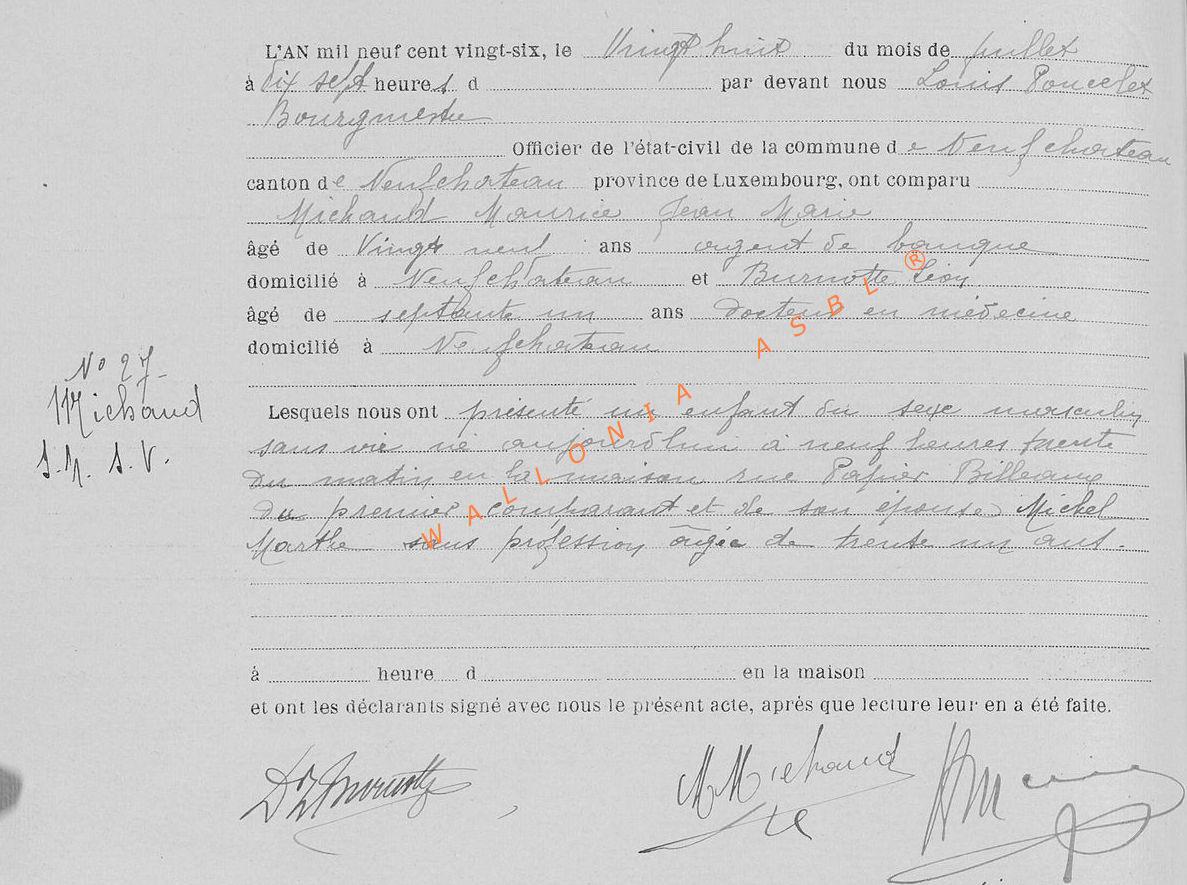 L'AN mil neuf cent vingt-six, le Vingt huit du mois de juillet
à dix sept heures d par devant nous Louis Poncelet
Bourgmestre
Officier de l'état-civil de la commune de Neufchateau
canton de Neufchateau province de Luxembourg, ont comparu
Michaud Maurice Jean Marie
âgé de Vingt neuf ans agent de banque
domicilié à Neufchâteau et Burnotte Léon
âgé de septante un ans docteur en médecine
domicilié à Neufchateau
No 27
Michaud
S. V.
Lesquels nous ont présenté un enfant du sexe masculin
sans vie né aujourd'hui à neuf heures trente
du matin en la maison rue Papier Billeaux
du premier comparant et de son épouse Michel
Marthe sans profession âgée de trente un ans.
à heure d en la maison
et ont les déclarants signé avec nous le présent acte, après que lecture leur en a été faite.
Dr L Burnotte
M Michaud
WALLONIA ASBL ®